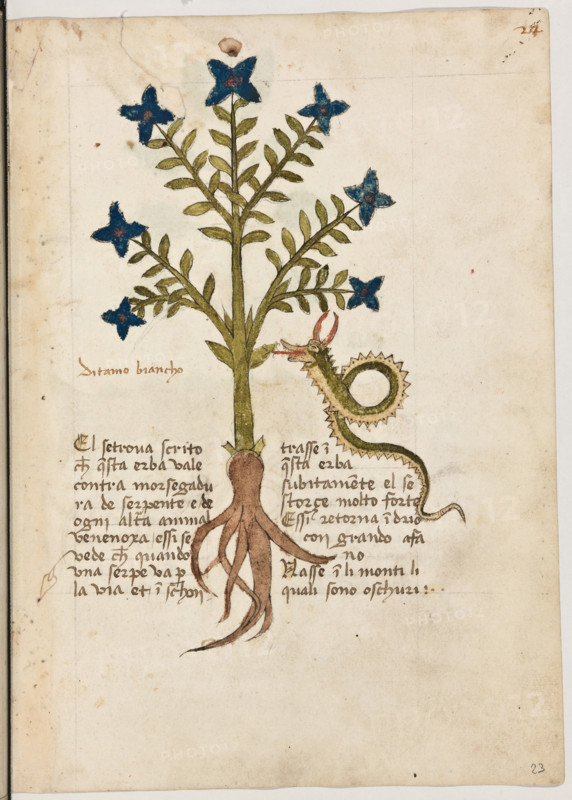 24
Ditamo biancho
El setrova scrito
ch̄ q̄sta erba vale
contra morsegadu
ra de serpente e de
ogni alt̄a animal
venenoxa essi se
vede ch̄ quando
vna serpe va p
la via et ī schon
trasse ī
q̄sta erba
subitam̄ete el se
storçe molto forte
Essi retorna īdrio
con grando afa
no
Nasse ī li monti li
quali sono oschuri :··
23